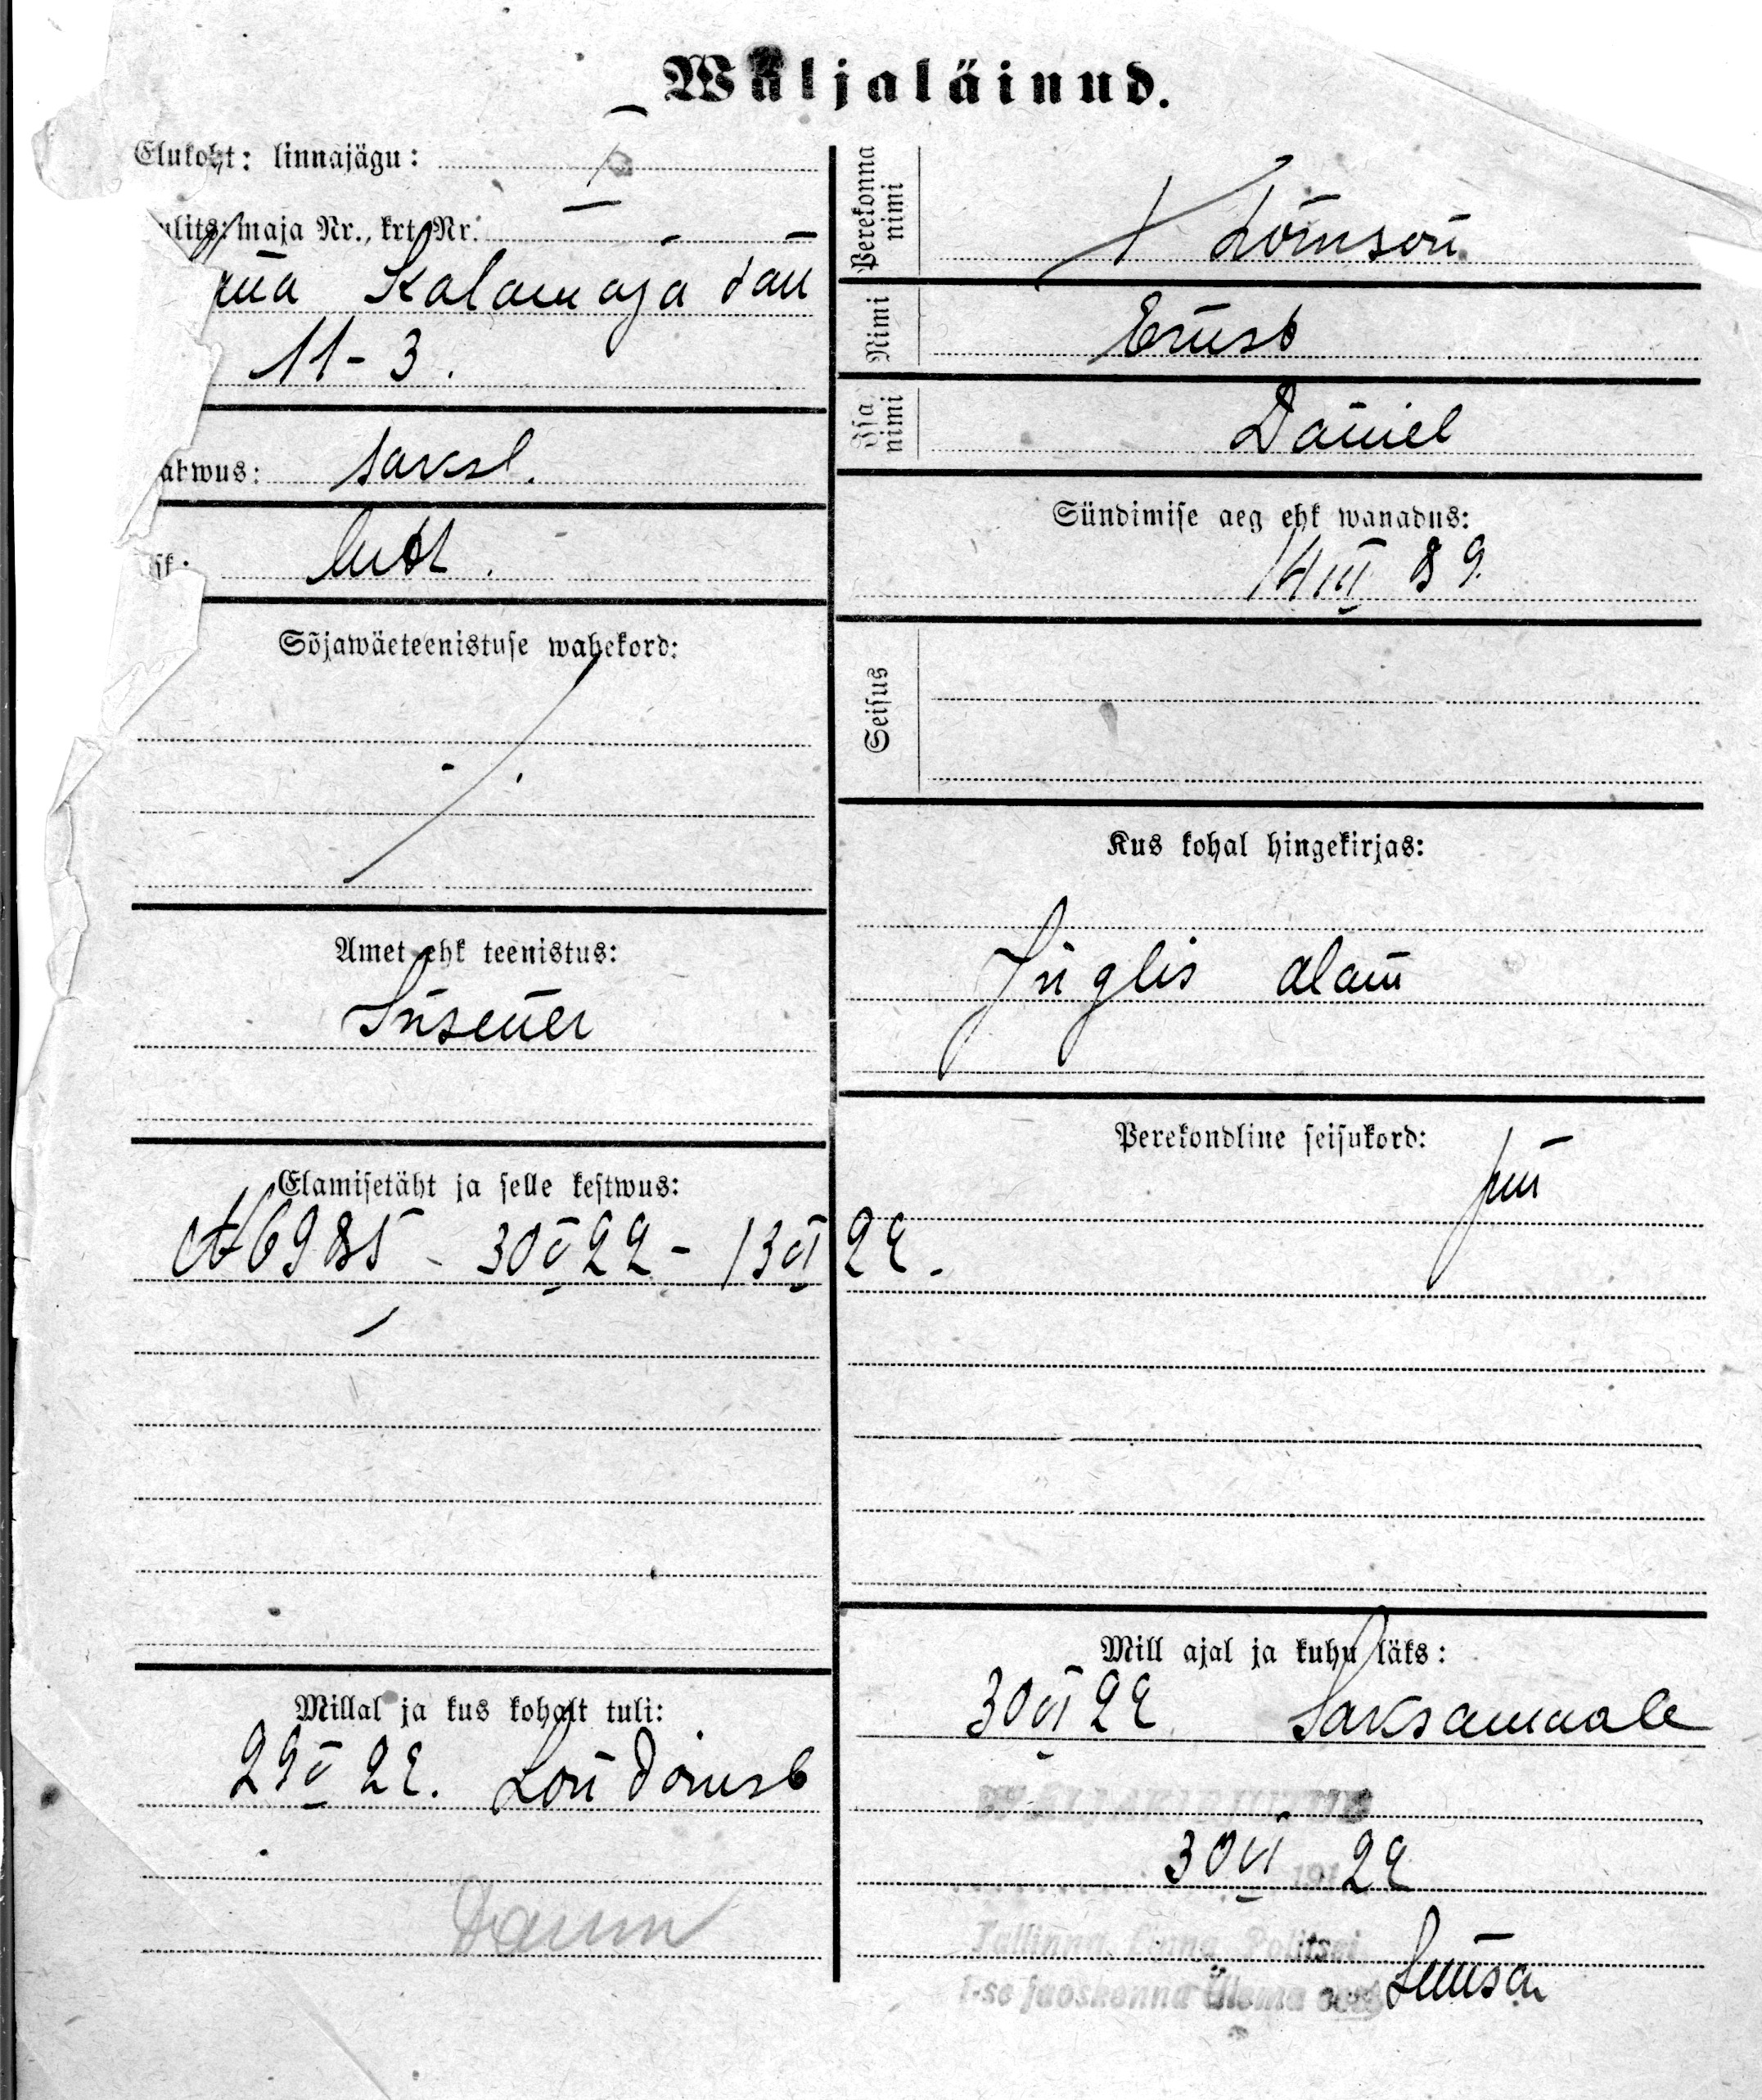 Wäljaläinud.
Elukoht: linnajägu:
ulits, maja Nr., krt. Nr.
Kalamaja tän
11-3.
ahwus: saksl.
sk: lutt.
Sõjawäeteenistuse wahekord:
Amet ehk teenistus:
Insener
Elamisetäht ja selle kestwus:
№ 6985 - 30 V 22 - 13 VI 22.
Millal ja kus kohalt tuli:
29 V 22. Londonist
Perekonna nimi
Tomson
Nimi Ernst
Isa nimi Daniel
Sündimise aeg ehk wanadus:
14 III 89.
Seisus
Kus kohal hingekirjas:
Inglis alam
Perekondline seisukord:
Mill ajal ja kuhu läks:
30 VI 22 Saksamaale
30 VI 1912 22
Tallinna Linna Politsei
I-se jaoskonna Ülema